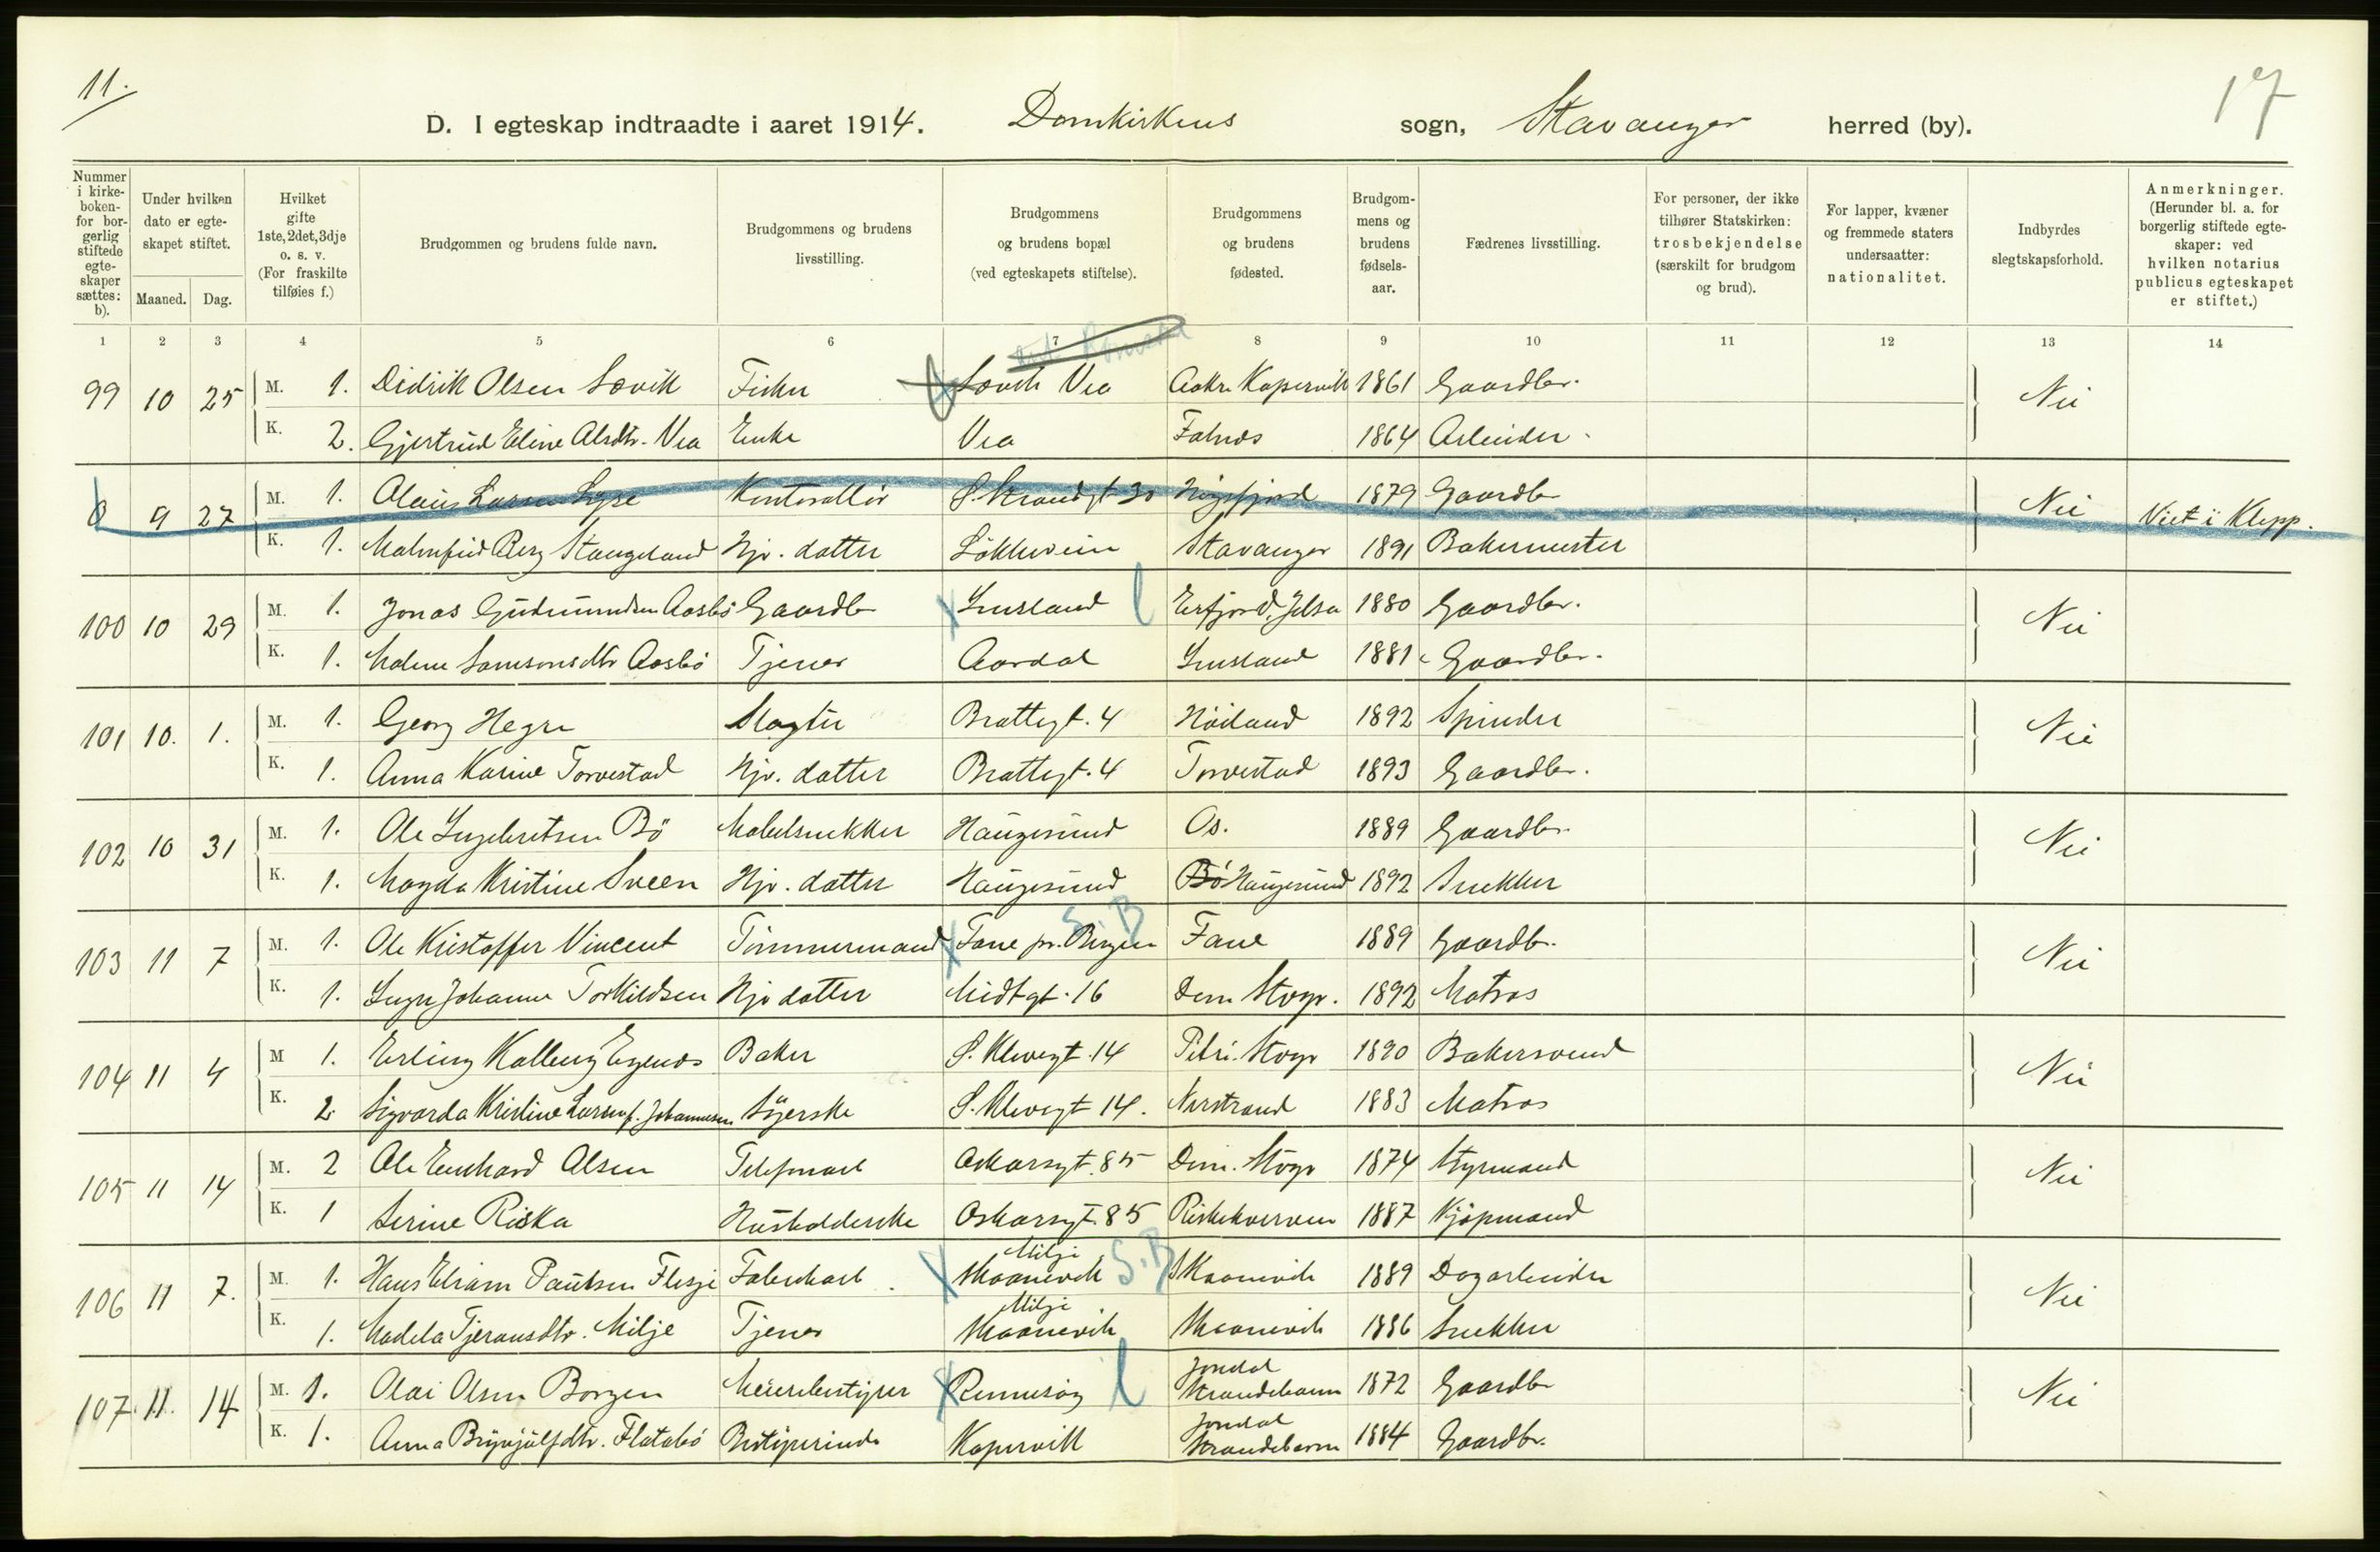 11.
17
D. I egteskap indtraadte i aaret 1914. Domkirkens sogn, Stavanger herred (by).
Nummer i kirke-boken- for bor-gerlig stiftede egte-skaper sættes: b).
Under hvilken dato er egte-skapet stiftet.
Maaned. Dag.
Hvilket gifte 1ste, 2det, 3dje o. s. v. (For fraskilte tilføies f.)
Brudgommen og brudens fulde navn.
Brudgommens og brudens livsstilling.
Brudgommens og brudens bopæl (ved egteskapets stiftelse).
Brudgommens og brudens fødested.
Brudgom-mens og brudens fødsels-aar.
Fædrenes livsstilling.
For personer, der ikke tilhører Statskirken: trosbekjendelse (særskilt for brudgom og brud).
For lapper, kvæner og fremmede staters undersaatter: nationalitet.
Indbyrdes slegtskapsforhold.
Anmerkninger. (Herunder bl. a. for borgerlig stiftede egte-skaper: ved hvilken notarius publicus egteskapet er stiftet.)
1 2 3 4 5 6 7 8 9 10 11 12 13 14
99 10 25 M. 1. Didrik Olsen Sovik Fisker Sovik Vea Aakre Kopervik 1861 Gaardbr. Nei
K. 2. Gjertrud Eline Alsdtr. Vea Enke Vea Falnes 1864 Arbeider.
0 9 27 M. 1. Olaus Larsen Lyse Kontorallør S. Strandgt 30 Høgsfjord 1879 Gaardbr Nei Viet i Klepp.
K. 1. Malmfrid Berg Stangeland Hjv. datter Løkkeveien Stavanger 1891 Bakermester
100 10 29 M. 1. Jonas Gudmundsen Aasbø Gaardbr Imsland l Erfjord, Jelsa 1880 Gaardbr. Nei
K. 1. Malene Samsonsdtr Aasbø Tjener Aardal Imsland 1881 Gaardbr.
101 10. 1. M. 1. Georg Hegre Slagter Brattegt. 4 Høiland 1892 Spinder Nei
K. 1. Anna Karine Torvestad Hjv. datter Brattegt. 4 Torvestad 1893 Gaardbr.
102 10 31 M. 1. Ole Ingebretsen Bø Møbelsnekker Haugesund Os. 1889 Gaardbr. Nei
K. 1. Magda Kristine Sveen Hjv. datter Haugesund Bø Haugesund 1892 Snekker
103 11 7 M. 1. Ole Kristoffer Vincent Tømmermand Fane pr. Bergen S.B Fane 1889 Gaardb. Nei
K. 1. Inger Johanne Torkildsen Hjv datter Midtgt. 16 Dom Stvgr. 1892 Matros
104 11 4 M 1. Erling Kalberg Egenes Baker S. Klevegt. 14 Petri. Stvgr 1890 Bakersvend Nei
K. 2 Sigvarda Kristine Larsen f. Johannesen Syerske S. Klevegt 14. Nerstrand 1883 Matros
105 11 14 M. 2 Ole Enchard Olsen Telefonarb Oskarsgt. 85 Dom. Stvgr 1874 Styrmand Nei
K. 1 Serine Riska Husholderske Oskarsgt. 85 Riskekverven 1887 Kjøpmand
106 11 7. M. 1. Hans Elram Paulsen Flesje Fabrikarb. Milje Skaanevik S.B Skaanevik 1889 Dagarbeider Nei
K. 1. Madela Tjeransdtr. Milje Tjener Milje Skaanevik Skaanevik 1886 Snekker
107. 11. 14 M. 1. Olai Olsen Borgen Meieribestyrer Rennesøy l Jondal Strandebarm 1872 Gaardbr Nei
K. 1. Anna Brynjulfsdtr. Flatabø Bestyrerinde Kopervik Jondal Strandebarm 1884 Gaardbr.